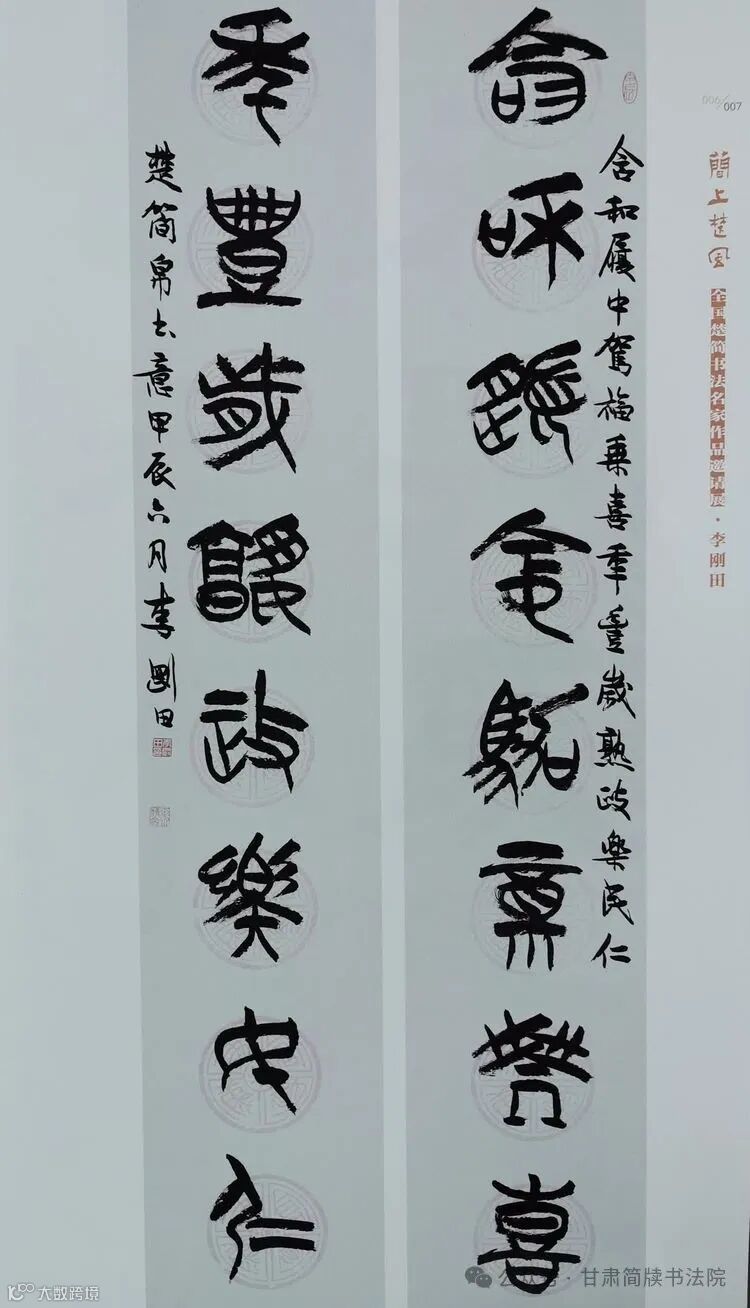 含和履中駕福乘喜
含和履中駕福乘喜年豐歲熟政樂民仁
年豐歲熟政樂民仁
楚簡帛書意甲辰六月李剛田
006/007
簡上楚風
全国楚简书法名家作品邀请展·李刚田
公众号·甘肃简牍书法院
大数跨境